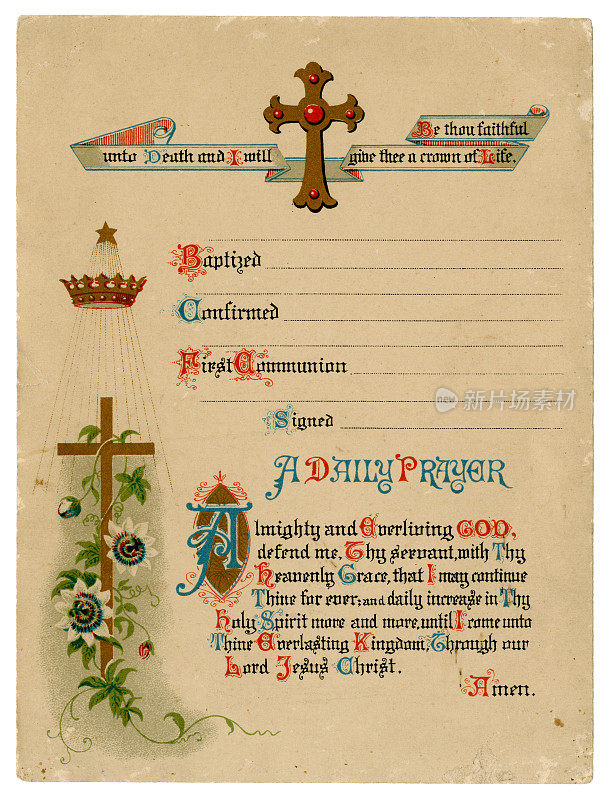 Be thou faithful
unto Death and I will give thee a crown of Life.
Baptized
Confirmed
First Communion
Signed
new 新片场素材
A DAILY PRAYER
Almighty and Everliving GOD,
defend me, Thy servant, with Thy
Heavenly Grace, that I may continue
Thine for ever: and daily increase in Thy
Holy Spirit more and more, until I come unto
Thine Everlasting Kingdom, Through our
Lord Jesus Christ.
Amen.